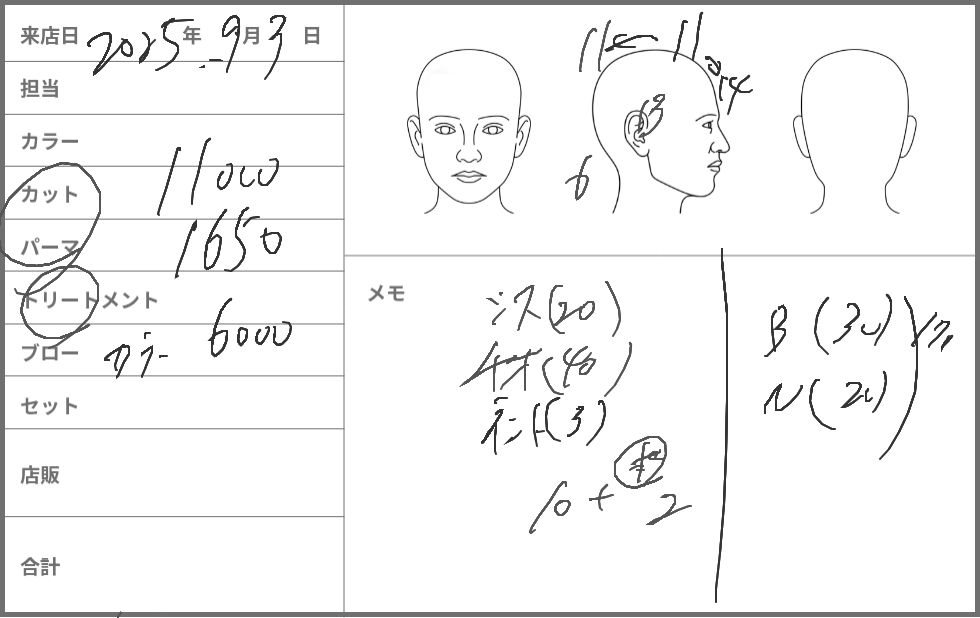 来店日 2025年 9月3日
担当
カラー
カット 11000
パーマ 1650
トリートメント
ブロー カラー 6000
セット
店販
合計
11 ← 11
14
13
6
メモ
シス(20)
(40)
(3)
10 + 2
B (30)
N (20)